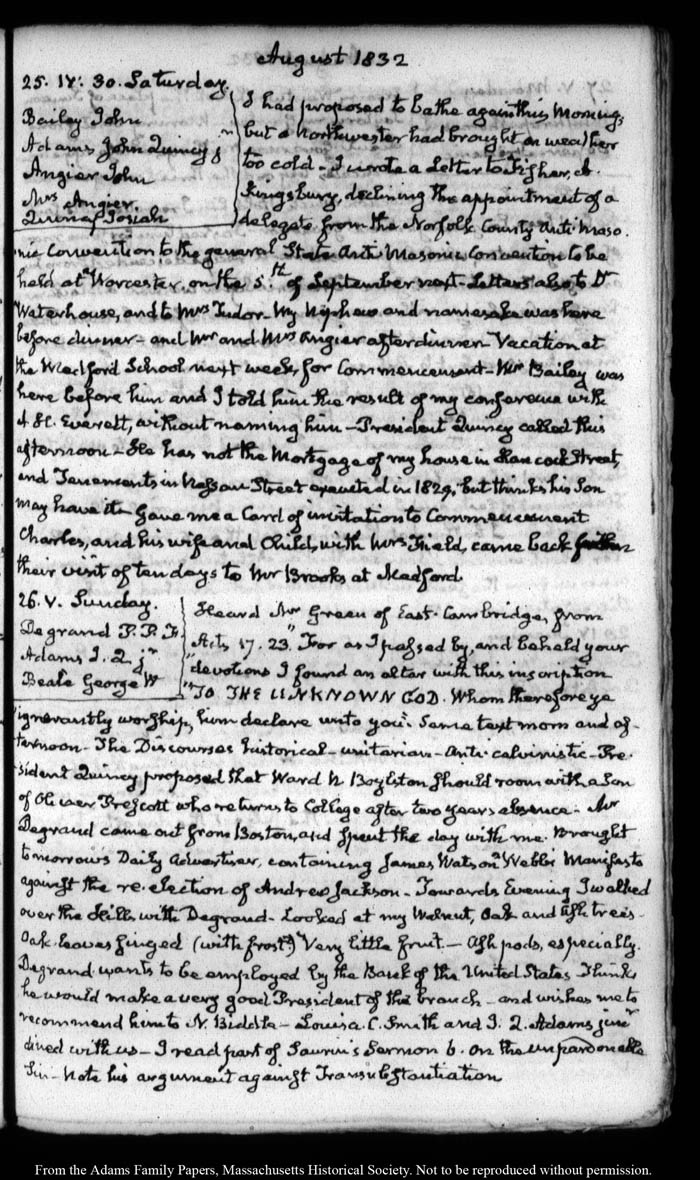 August 1832
25. IV: 30. Saturday.
Bailey John
Adams John Quincy
Angier John
Mrs Angier.
Quincy Josiah
I had proposed to bathe again this Morning;
but a Northwester had brought on weather
too cold – I wrote a Letter to Fisher, A.
Kingsbury, declining the appointment of a
delegate from the Norfolk County Anti Maso-
nic Convention to the general State Anti Masonic Convention to be
held at Worcester, on the 5.th of September next – Letters also to Dr
Waterhouse, and to Mrs Tudor – My Nephew and namesake was here
before dinner – and Mr and Mrs Angier after dinner – Vacation at
the Medford School next week, for Commencement – Mr Bailey was
here before him and I told him the result of my conference with
A. H. Everett, without naming him – President Quincy called this
afternoon – He has not the Mortgage of my house in Hancock Street,
and Tenements in Nassau Street executed in 1829, but thinks his Son
may have it – Gave me a Card of invitation to Commencement
Charles, and his wife and Child, with Mrs Field, came back from
their visit of ten days to Mr Brooks at Medford.
26. V. Sunday.
Degrand P. P. F.
Adams J. Q. jr
Beale George W
Heard Mr Green of East-Cambridge, from
Acts 17. 23. "For as I passed by, and beheld your
"devotions I found an altar with this inscription
"TO THE UNKNOWN GOD. Whom therefore ye
"ignorantly worship, him declare unto you". Same text morn and af-
ternoon – The Discourses historical – unitarian – Anti-calvinistic – Pre-
sident Quincy proposed that Ward N. Boylston should room with a Son
of Oliver Prescott who returns to College after two years absence – Mr
Degrand came out from Boston, and spent the day with me. Brought
tomorrow's Daily Advertiser, containing James Watson Webb's Manifesto
against the re-election of Andrew Jackson – Towards Evening I walked
over the Hills with Degrand – Looked at my Walnut, Oak and Ash trees –
Oak leaves singed (with frost?) Very little fruit. – Ash pods, especially.
Degrand wants to be employed by the Bank of the United States – Thinks
he would make a very good President of the branch – and wishes me to
recommend him to N. Biddle – Louisa C. Smith and J. Q. Adams junr
dined with us – I read part of Saurin's Sermon 6. on the unpardonable
Sin – Note his argument against Transubstantiation
From the Adams Family Papers, Massachusetts Historical Society. Not to be reproduced without permission.